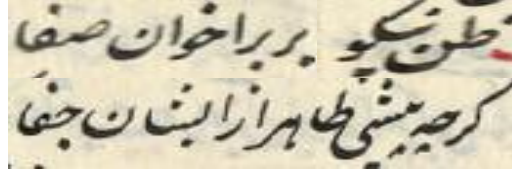 ظن نیکو بر بر اخوان صفا
کرچه بینی ظاهر از ایشان جفا